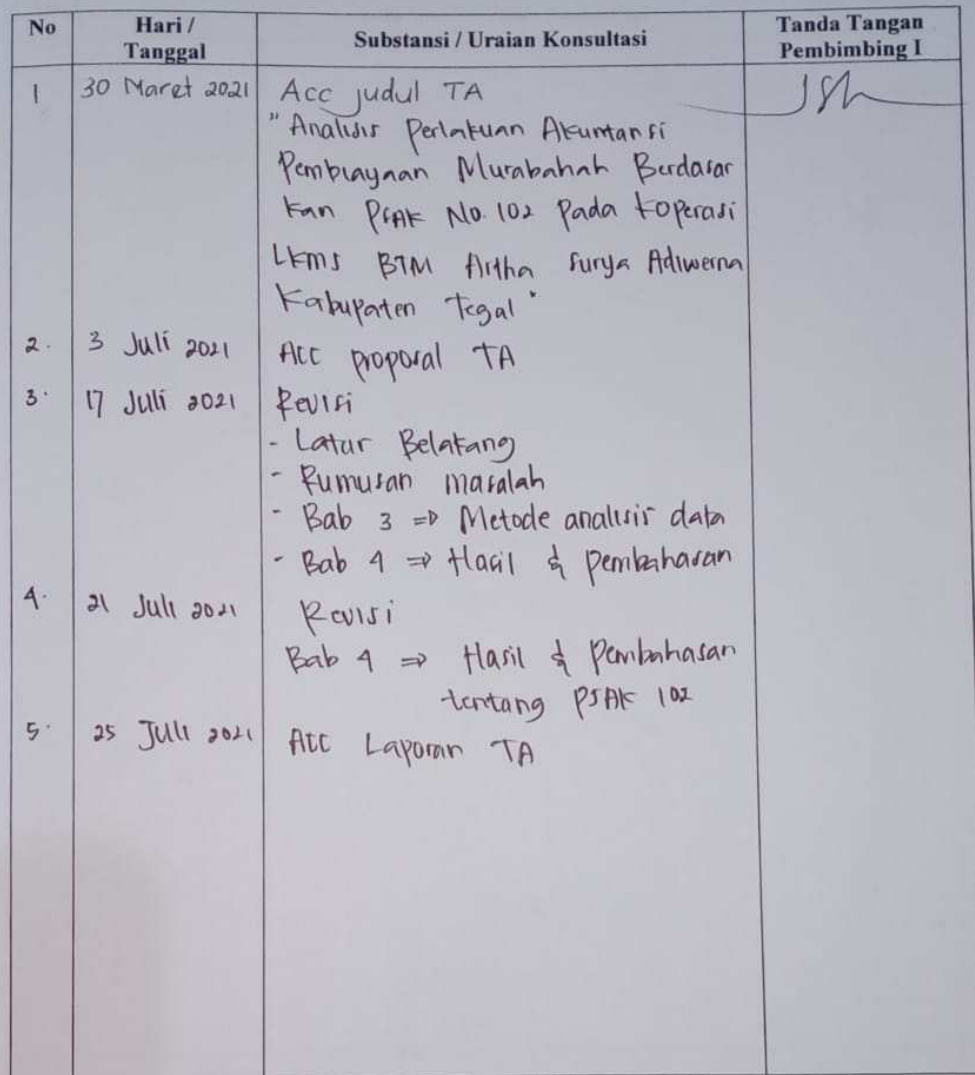 No Hari / Tanggal Substansi / Uraian Konsultasi Tanda Tangan Pembimbing I
1 30 Maret 2021 Acc judul TA
"Analisis Perlakuan Akuntansi
Pembiayaan Murabahah Berdasar
kan PSAK No. 102 Pada Koperasi
LKMS BTM Artha Surya Adiwerna
Kabupaten Tegal"
2. 3 Juli 2021 Acc proposal TA
3. 17 Juli 2021 Revisi
- Latar Belakang
- Rumusan masalah
- Bab 3 => Metode analisis data
- Bab 4 => Hasil & Pembahasan
4. 21 Juli 2021 Revisi
Bab 4 => Hasil & Pembahasan
tentang PSAK 102
5. 25 Juli 2021 Acc Laporan TA